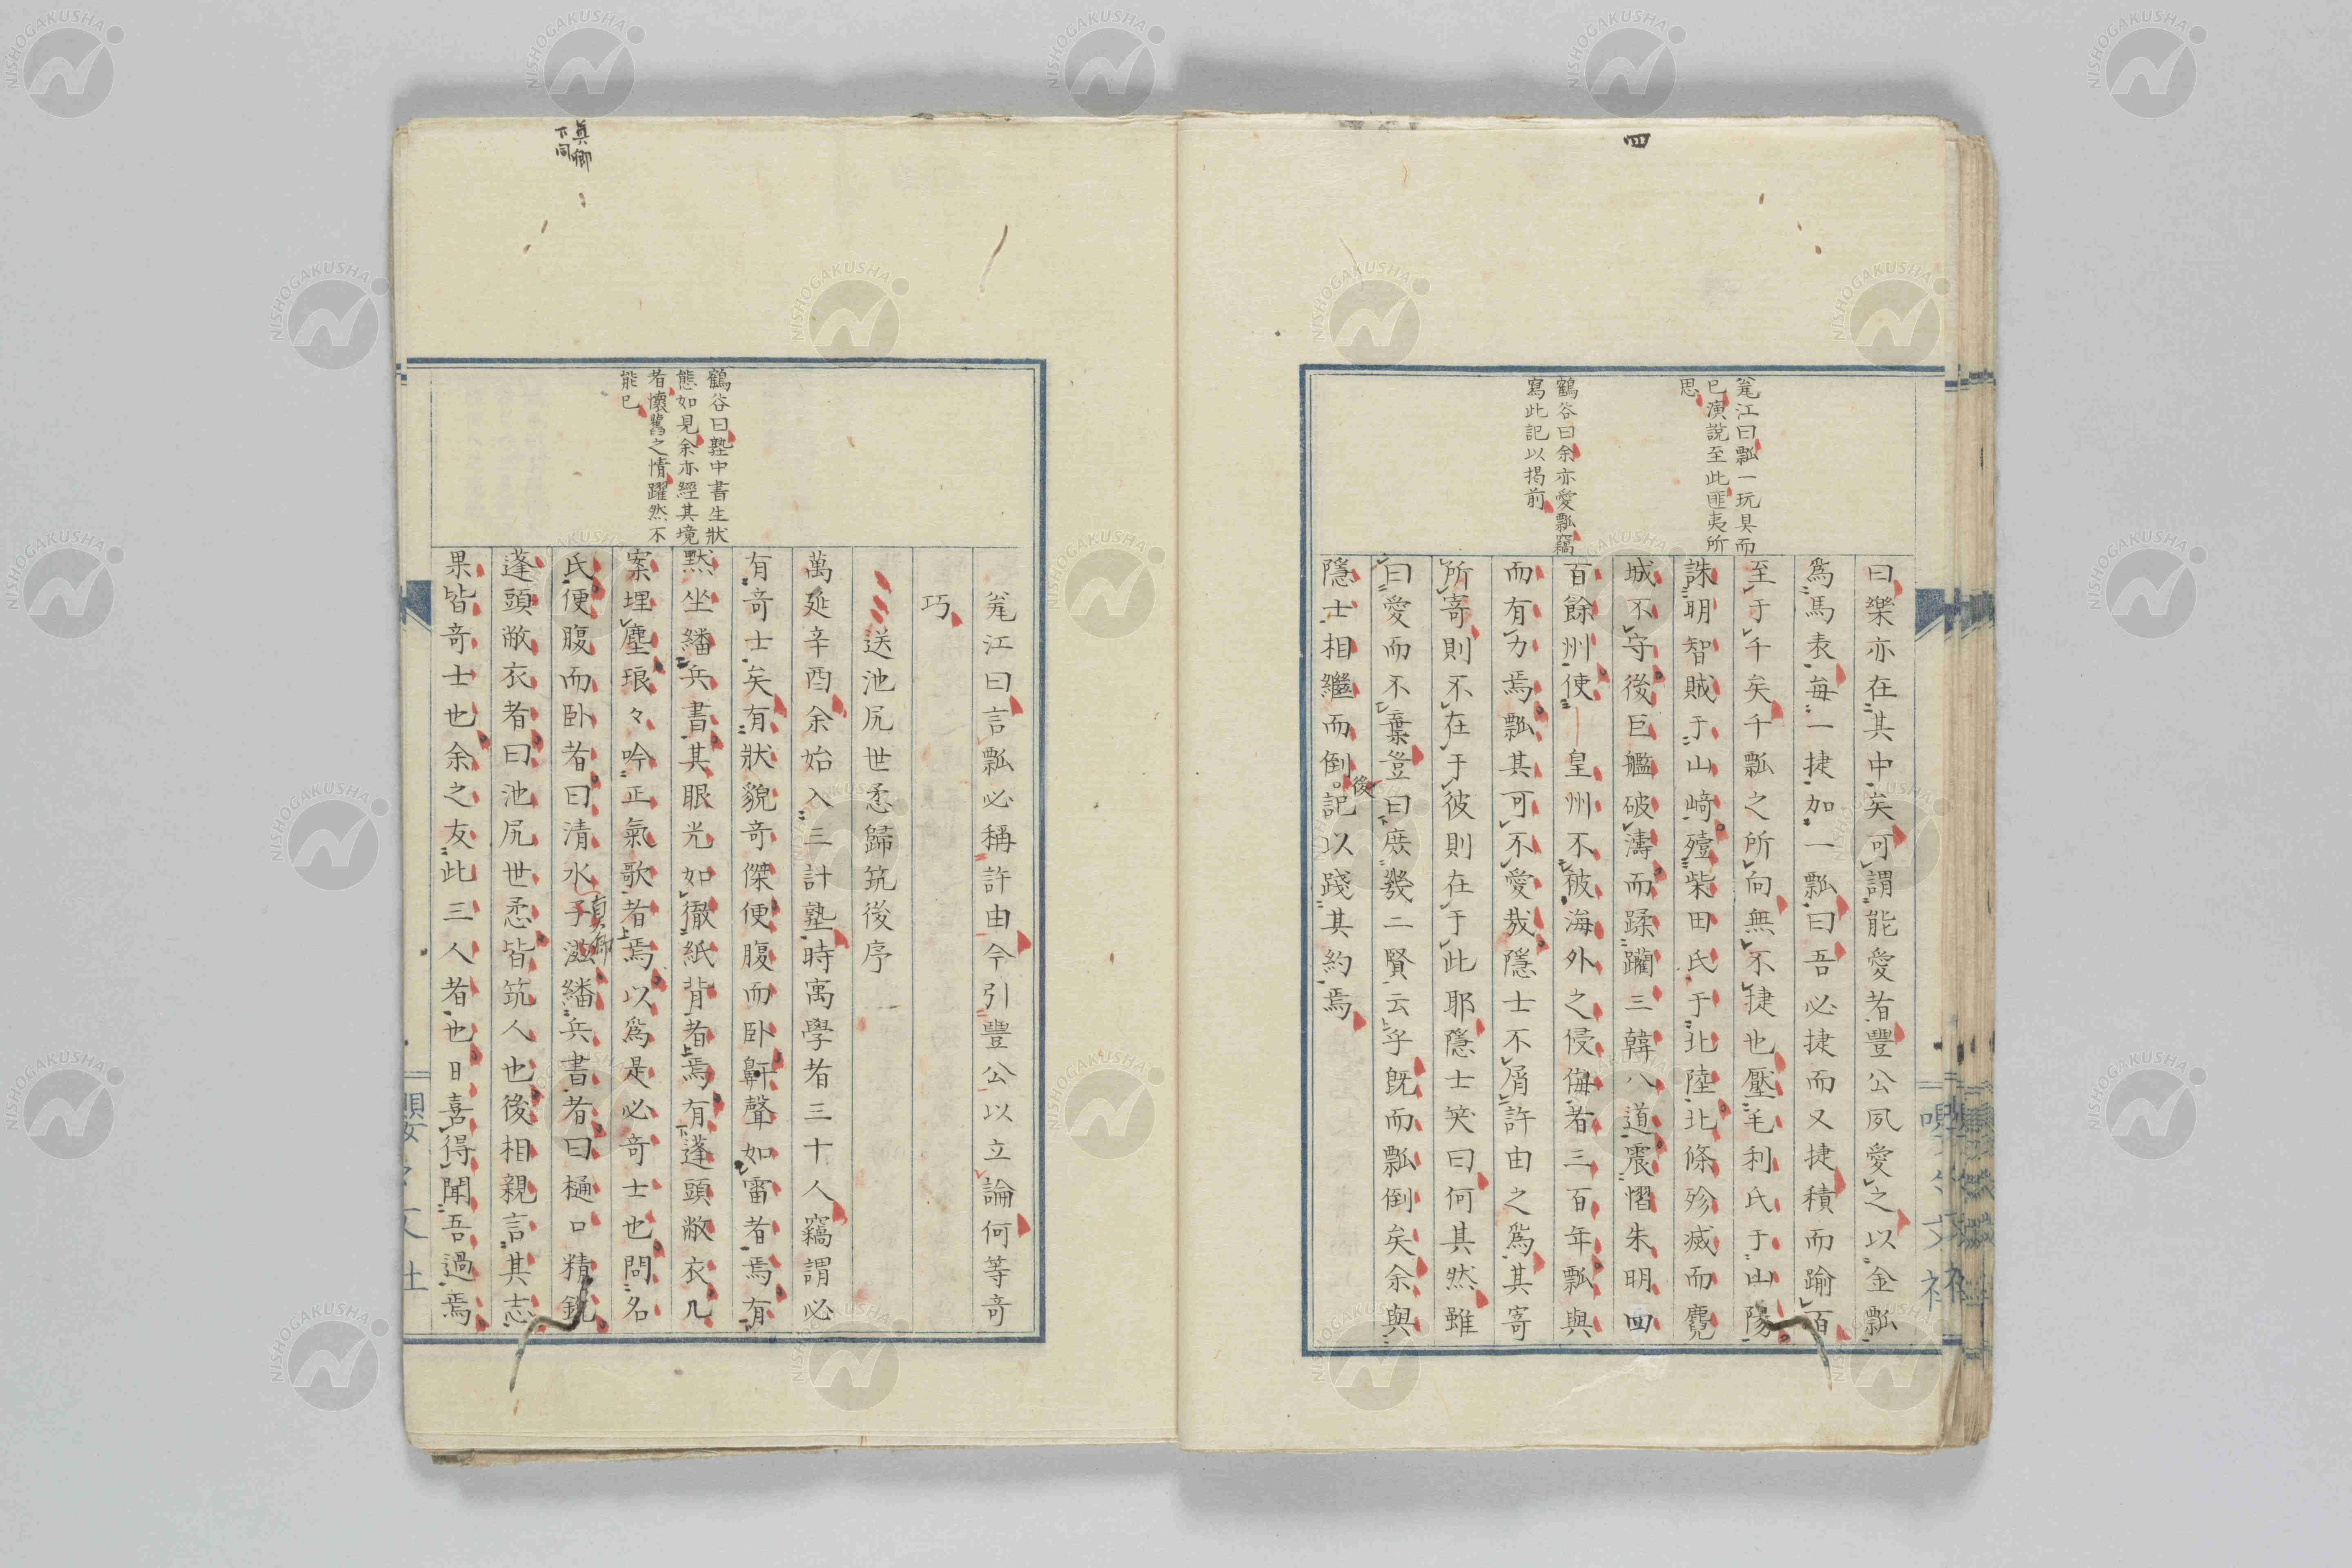 四
毣江曰瓢一玩具而
已演說至此匪夷所
思
鶴谷曰余亦愛瓢竊
寫此記以揭前
曰樂亦在其中矣可謂能愛者豐公夙愛之以金瓢
爲馬表每一捷加一瓢曰吾必捷而又捷積而踰百
至于千矣千瓢之所向無不捷也壓毛利氏于山陽
誅明智賊于山崎殪柴田氏于北陸北條殄滅而麑
城不守後巨艦破濤而蹂躪三韓八道震慴朱明四
百餘州使 皇州不被海外之侵侮者三百年瓢與
而有力焉瓢其可不愛哉隱士不屑許由之爲其寄
所寄則不在于彼則在于此耶隱士笑曰何其然雖
曰愛而不棄豈曰庶幾二賢云乎旣而瓢倒矣余與
隱士相繼而倒後記以踐其約焉
眞卿
下同
鶴谷曰塾中書生狀
態如見余亦經其境
者懷舊之情躍然不
能已
毣江曰言瓢必稱許由今引豐公以立論何等奇
巧
送池尻世悉歸筑後序
萬延辛酉余始入三計塾時寓學者三十人竊謂必
有奇士矣有狀貌奇傑便腹而臥鼾聲如雷者焉有
默坐繙兵書其眼光如徹紙背者焉有蓬頭敝衣几
案埋塵琅々吟正氣歌者焉以爲是必奇士也問名
氏便腹而臥者曰清水子滋眞卿繙兵書者曰樋口精銳
蓬頭敝衣者曰池尻世悉皆筑人也後相親言其志
果皆奇士也余之友此三人者也日喜得聞吾過焉
嚶々文社